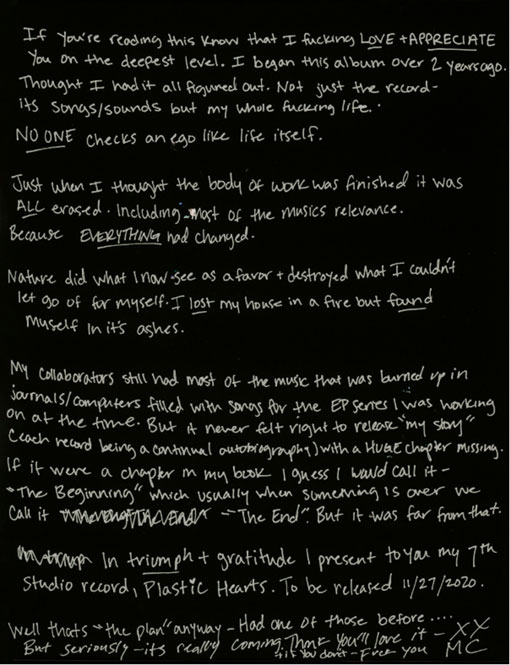 If you're reading this know that I fucking LOVE + APPRECIATE
You on the deepest level. I began this album over 2 years ago.
Thought I had it all figured out. Not just the record-
its songs/sounds but my whole fucking life.
NO ONE checks an ego like life itself.
Just when I thought the body of work was finished it was
ALL erased. Including most of the musics relevance.
Because EVERYTHING had changed.
Nature did what I now see as a favor + destroyed what I couldn't
let go of for myself. I lost my house in a fire but found
Myself in it's ashes.
My collaborators still had most of the music that was burned up in
journals/computers filled with songs for the EP series I was working
on at the time. But it never felt right to release "my story"
(each record being a continual autobiography) with a HUGE chapter missing.
If it were a chapter in my book I guess I would call it -
"The Beginning" which usually when something is over we
call it - "The End". But it was far from that.
In triumph + gratitude I present to you my 7th
Studio record, Plastic Hearts. To be released 11/27/2020.
Well thats "the plan" anyway - Had one of those before ....
But seriously - its really coming. Think You'll love it - XX
+ if you don't - Fuck you MC